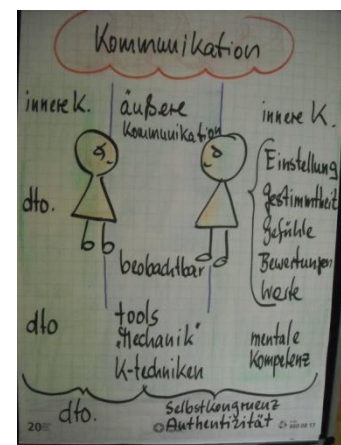 Kommunikation
innere K.
äußere
Kommunikation
innere K.
Einstellung
Gestimmtheit
Gefühle
Bewertungen
Werte
dto.
beobachtbar
dto
tools
"Mechanik"
K-techniken
mentale
Kompetenz
dto.
Selbstkongruenz
Authentizität
20